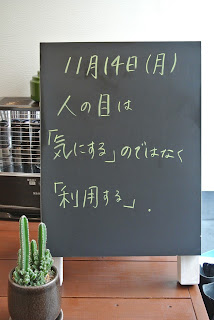 11月14日(月)
人の目は
「気にする」のではなく
「利用する」.